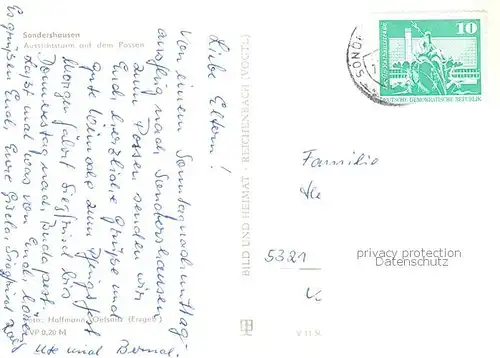 Sondershausen
Aussichtsturm auf dem Possen
Liebe Eltern!
Von einem Sonntagnachmittag-
ausflug nach Sondershausen
zum Possen senden wir
Euch herzliche Grüße und
gute Wünsche zum Pfingstfest
Morgen fährt Siegfried bis
Donnerstag nach Budapest.
Laßt mal was von Euch hören
Es grüßen Euch, Eure Gisela, Siegfried
Ute und Bernd.
Foto: Hoffmann, Oelsnitz (Erzgeb.)
EVP 0,20 M
BILD UND HEIMAT · REICHENBACH (VOGTL)
V 11
SOND
10
DEUTSCHE DEMOKRATISCHE REPUBLIK
Familie
5321
privacy protection
Datenschutz